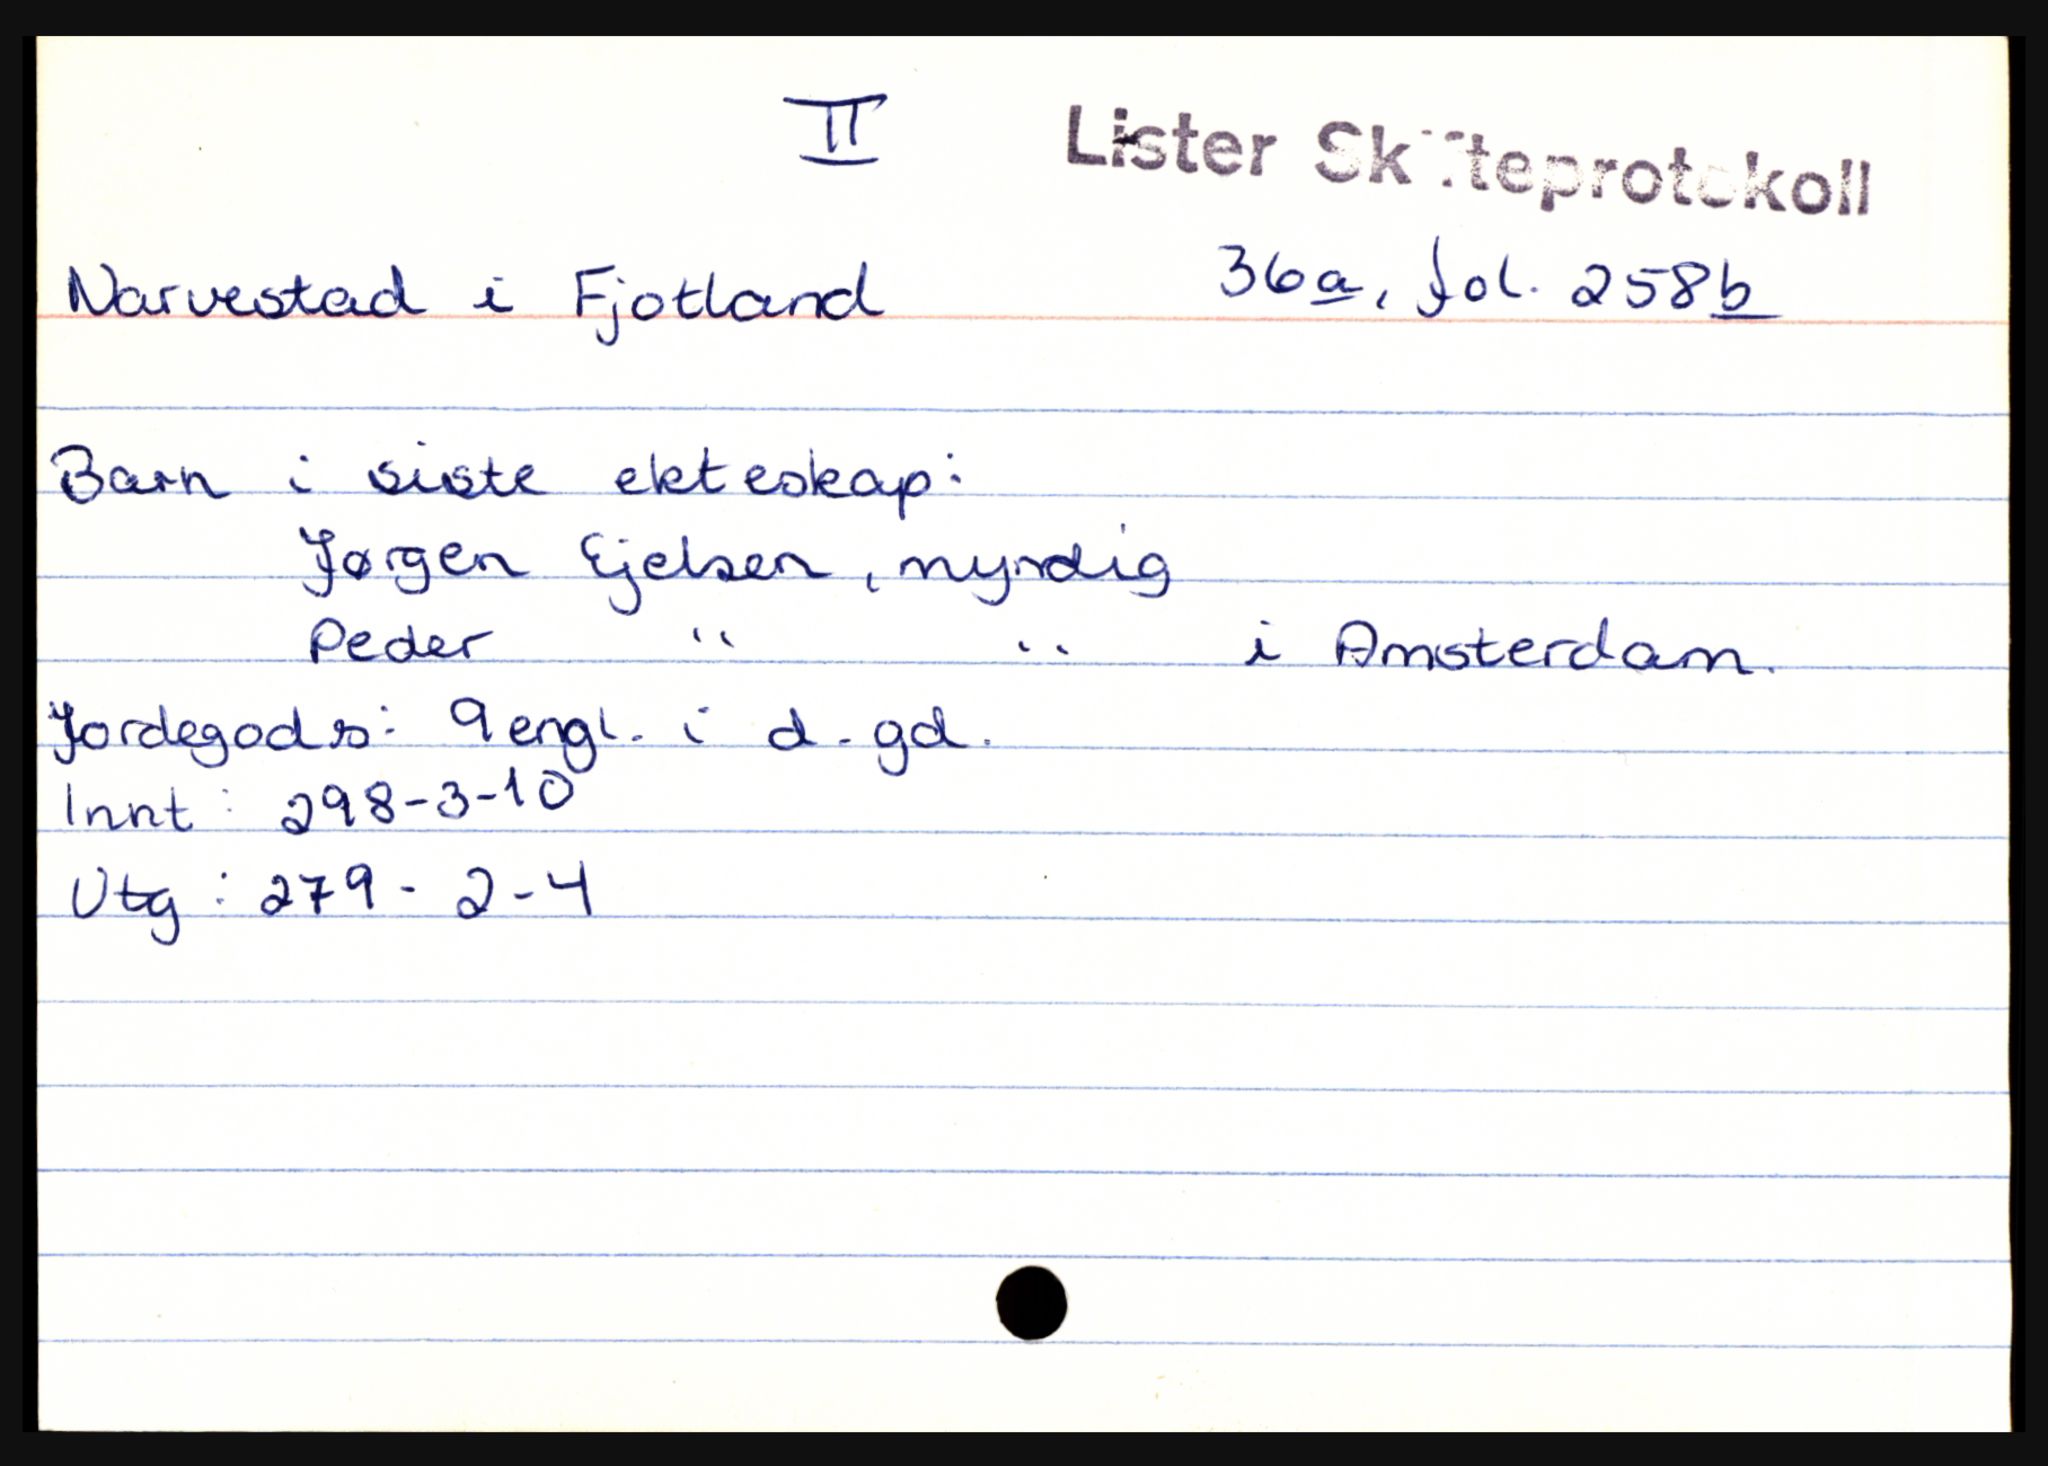 II
Lister Skifteprotokoll
Narvestad i Fjotland 36a, fol. 258b
Barn i siste ekteskap:
Jørgen Ejelsen, myndig
Peder " " i Amsterdam.
Jordegods: 9 engl. i d. gd.
Innt: 298-3-10
Utg: 279-2-4